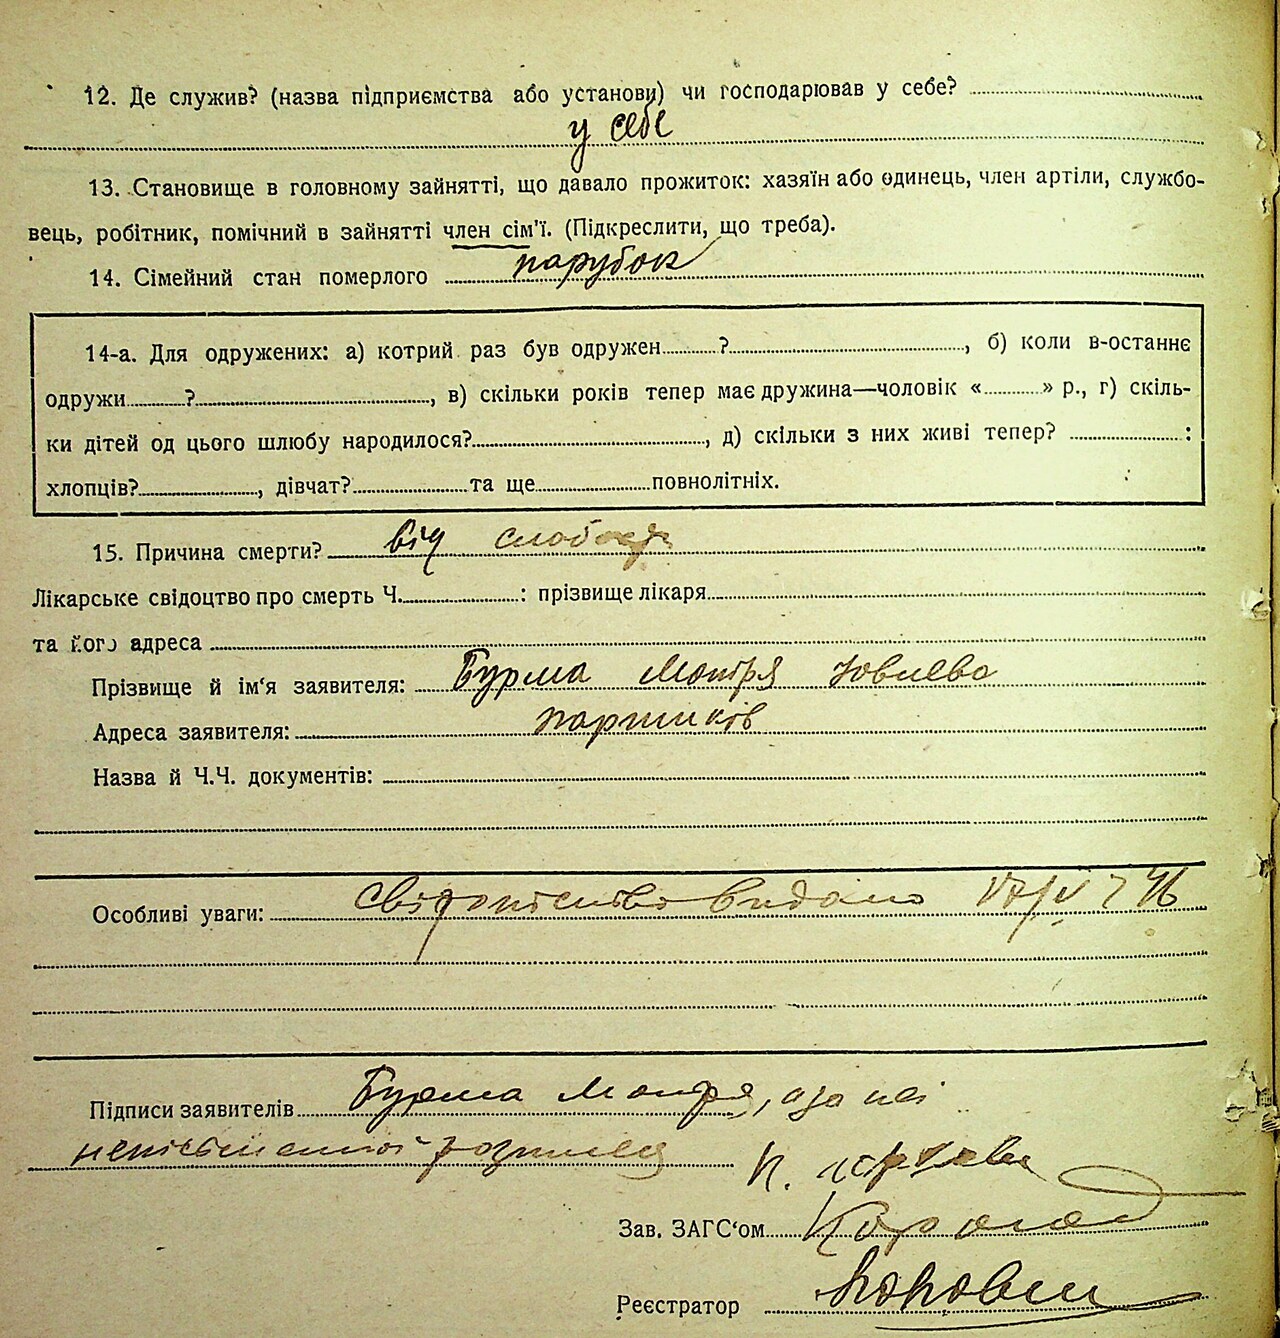 12. Де служив? (назва підприємства або установи) чи господарював у себе?
у себе
13. Становище в головному зайнятті, що давало прожиток: хазяїн або одинець, член артіли, службо-
вець, робітник, помічний в зайнятті член сім'ї. (Підкреслити, що треба).
14. Сімейний стан померлого парубок
14-а. Для одружених: а) котрий раз був одружен ? , б) коли в-останнє
одружи ? , в) скільки років тепер має дружина—чоловік « » р., г) скіль-
ки дітей од цього шлюбу народилося? , д) скільки з них живі тепер? :
хлопців? , дівчат? та ще повнолітніх.
15. Причина смерти? від
Лікарське свідоцтво про смерть Ч. : прізвище лікаря
та його адреса
Прізвище й ім'я заявителя: Бурма Мотря
Адреса заявителя:
Назва й Ч.Ч. документів:
Особливі уваги: видано
Підписи заявителів Бурма Мотря, а за неї
неписьменної
Зав. ЗАГС'ом
Реєстратор